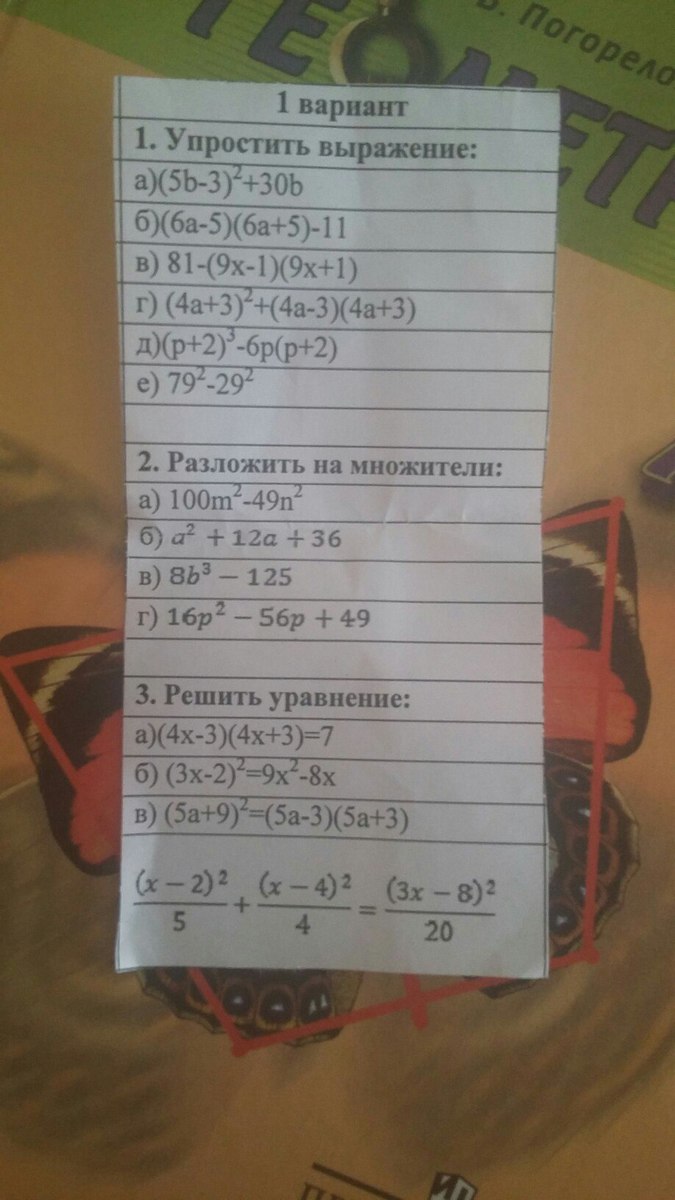 В. Погорело
ГЕОМЕТР
1 вариант
1. Упростить выражение:
а)(5b-3)²+30b
б)(6a-5)(6a+5)-11
в) 81-(9x-1)(9x+1)
г) (4a+3)²+(4a-3)(4a+3)
д)(p+2)³-6p(p+2)
е) 79²-29²
2. Разложить на множители:
а) 100m²-49n²
б) a² + 12a + 36
в) 8b³ − 125
г) 16p² − 56p + 49
3. Решить уравнение:
а)(4x-3)(4x+3)=7
б) (3x-2)²=9x²-8x
в) (5a+9)²=(5a-3)(5a+3)
(x − 2)²/5 + (x − 4)²/4 = (3x − 8)²/20